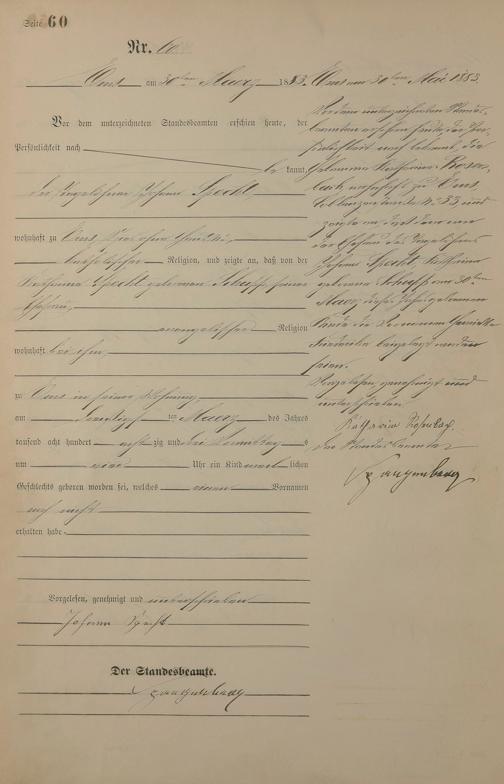 Seite 60
Nr. 60
Ems am 30ten Maerz 1883.
Vor dem unterzeichneten Standesbeamten erschien heute, der
Persönlichkeit nach
be kannt,
der Tagelöhner Johann Specht
wohnhaft zu Ems,
katholischer Religion, und zeigte an, daß von der
Katharina Specht geborenen Schupp seiner
Ehefrau,
evangelischer Religion
wohnhaft bei ihm,
zu Ems in seiner Wohnung,
am dreißigsten Maerz des Jahres
tausend acht hundert achtzig und drei Vormittags
um Uhr ein Kind lichen
Geschlechts geboren worden sei, welches einen Vornamen
noch nicht
erhalten habe
Vorgelesen, genehmigt und unterschrieben
Johann Specht
Der Standesbeamte.
Spangenberg
Ems am 30ten Mai 1883.
Vor dem unterzeichneten Standes-
beamten erschien heute, der Per-
sönlichkeit nach bekannt, die
Hebamme Katharina Rosen-
bach, wohnhaft zu Ems,
No 33, und
zeigte an, daß dem von
der Ehefrau des Tagelöhners
Johann Specht, Katharina
geborene Schupp am 30ten
Maerz dieses Jahres geborenen
Kinde die Vornamen
beigelegt worden
seien.
Vorgelesen, genehmigt und
unterschrieben
Katharina Rosenbach
Der Standesbeamte
Spangenberg